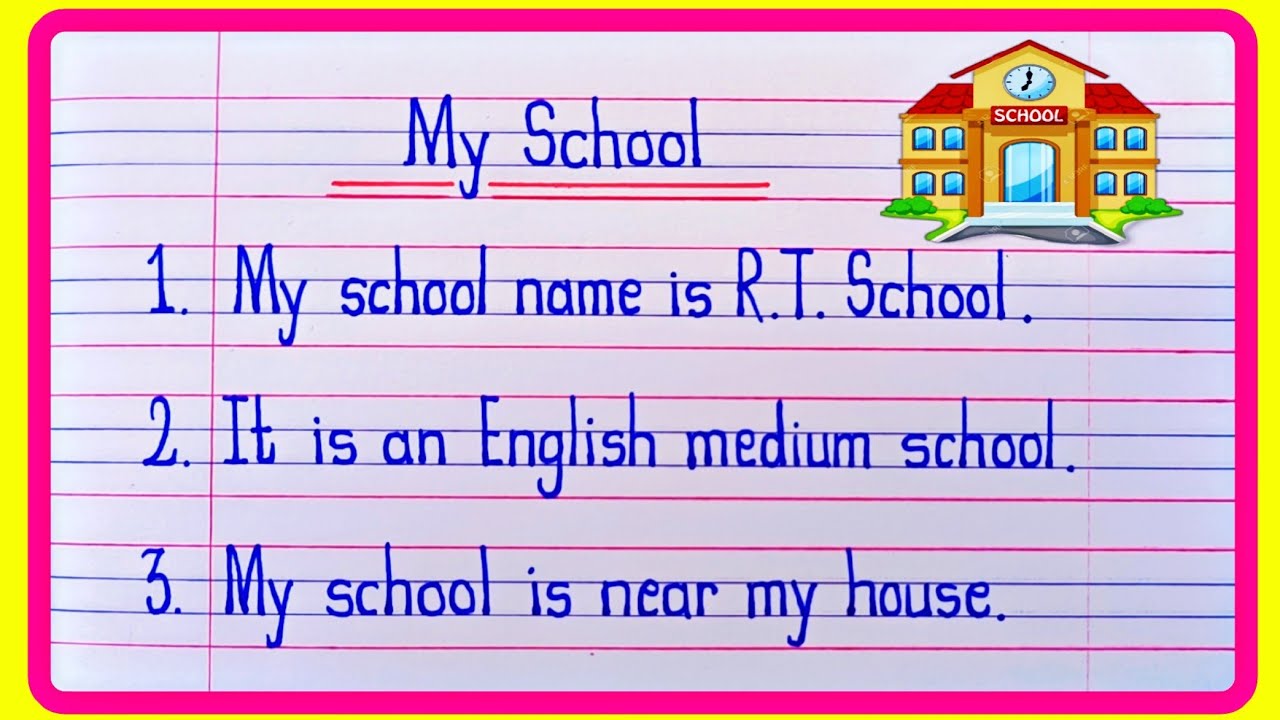 My School
SCHOOL
1. My school name is R.T. School.
2. It is an English medium school.
3. My school is near my house.